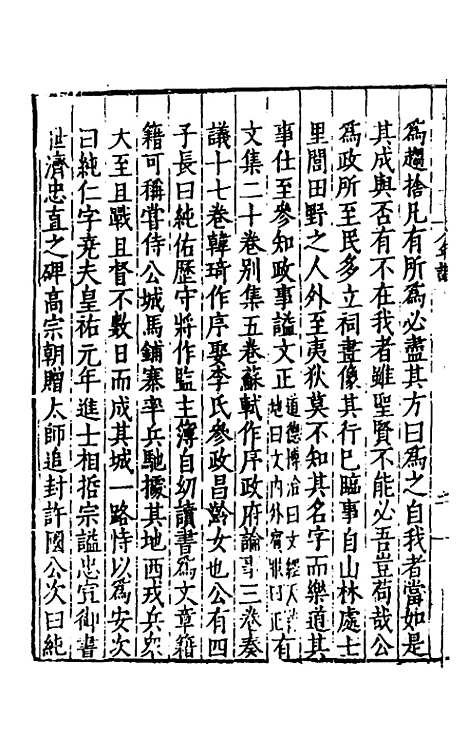 為趨捨凡有所為必盡其方曰為之自我者當如是
其成與否有不在我者雖聖賢不能必吾豈苟哉公
為政所至民多立祠畫像其行己臨事自山林處士
里閭田野之人外至夷狄莫不知其名字而樂道其
事仕至參知政事謚文正道德博洽曰文經天緯地曰文內外賓服曰正有
文集二十卷別集五卷蘇軾作序政府論事三卷奏
議十七卷韓琦作序娶李氏參政昌齡女也公有四
子長曰純佑歷守將作監主簿自幼讀書為文章籍
籍可稱嘗侍公城馬鋪寨率兵馳據其地西戎兵眾
大至且戰且督不數日而成其城一路恃以為安次
曰純仁字堯夫皇祐元年進士相哲宗謚忠宣御書
世濟忠直之碑高宗朝贈太師追封許國公次曰純